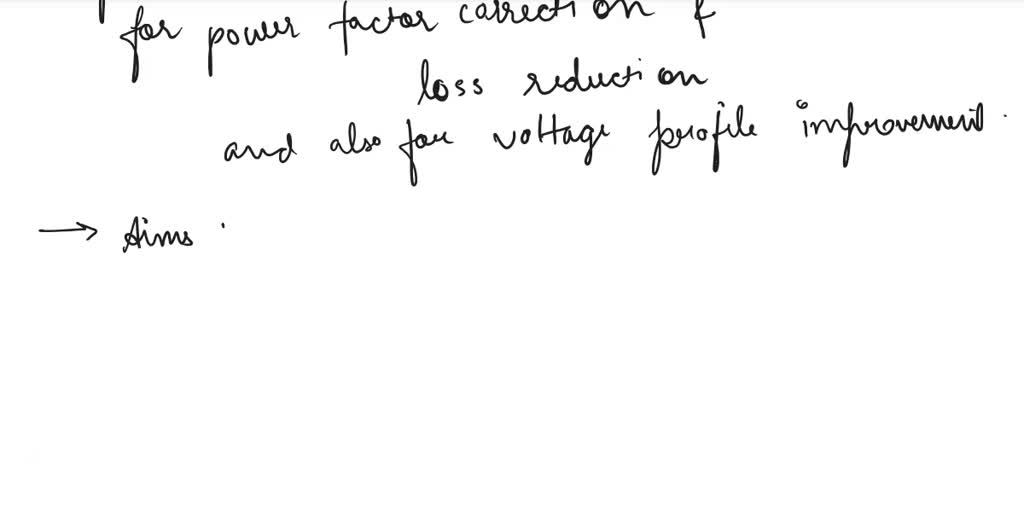 for power factor correction &
loss reduction
and also for voltage profile improvement.
→ Aims